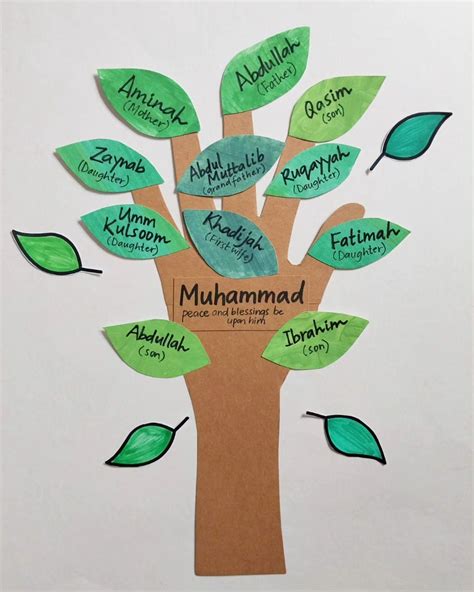 Abdullah
(Father)
Aminah
(Mother)
Qasim
(son)
Zaynab
(Daughter)
Abdul
Muttalib
(grandfather)
Ruqayyah
(Daughter)
Umm
Kulsoom
(Daughter)
Khadijah
(First wife)
Fatimah
(Daughter)
Muhammad
peace and blessings be
upon him
Abdullah
(son)
Ibrahim
(son)